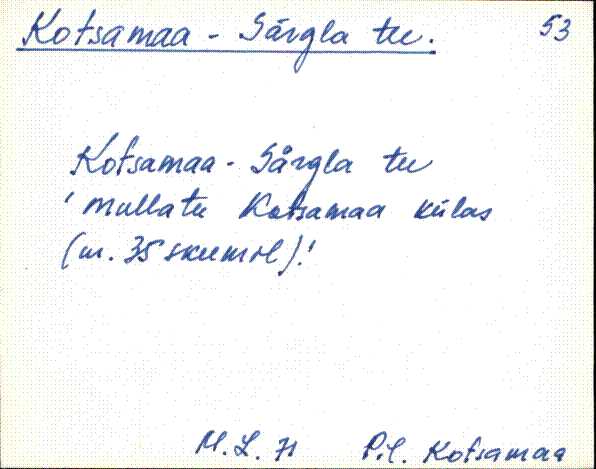 Kotsamaa - Särgla tee. 53
Kotsamaa - Särgla tee
' mullatee Kotsamaa külas
(nr. 35 skeemil)!
M. L. 71 P.-l. Kotsamaa